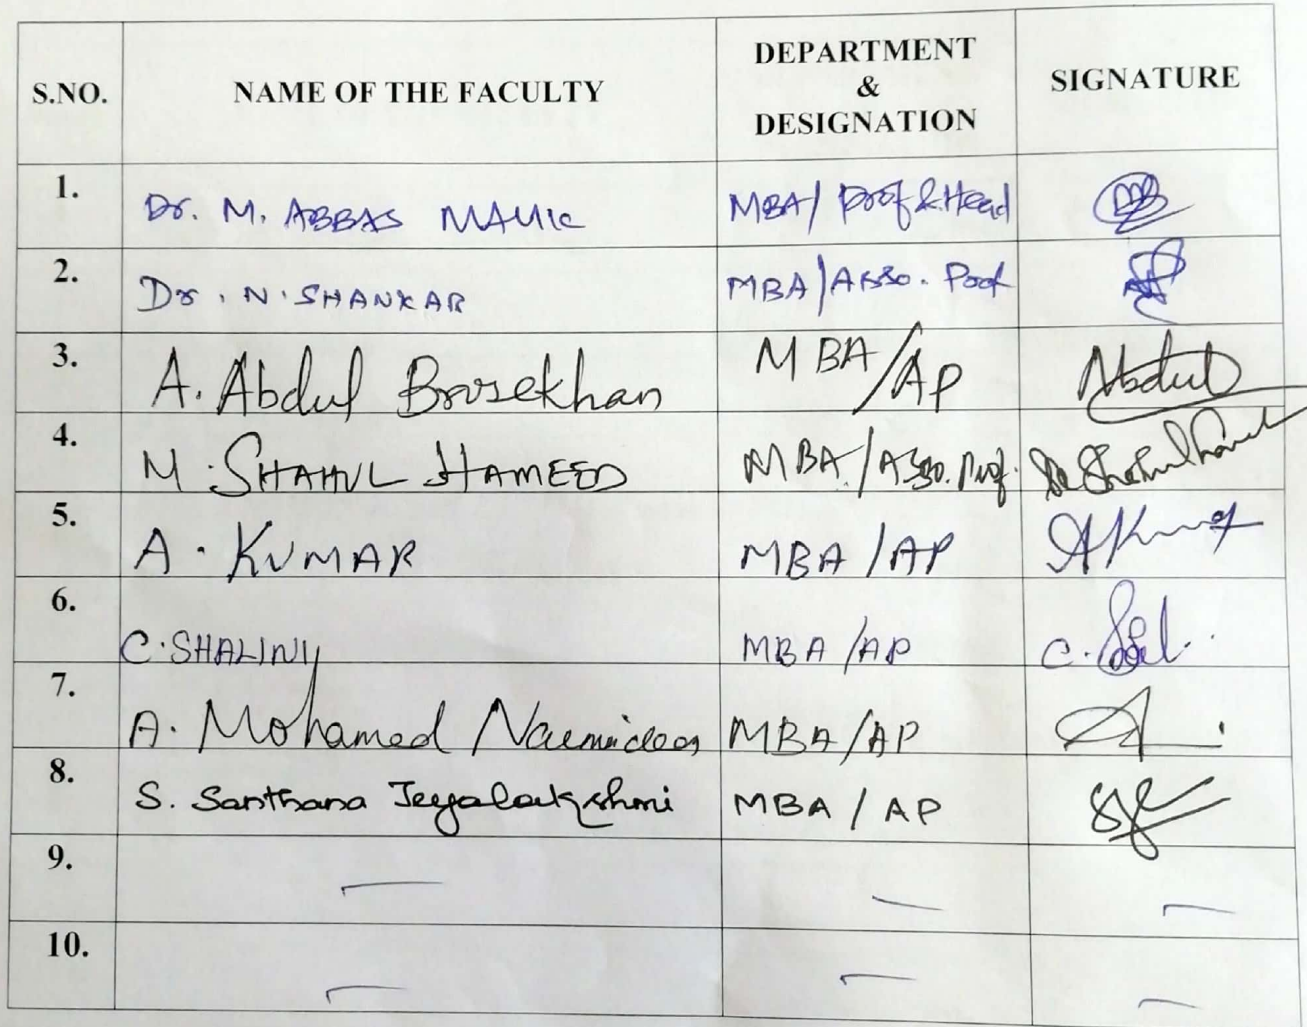 S.NO. NAME OF THE FACULTY DEPARTMENT & DESIGNATION SIGNATURE
1. Dr. M. ABBAS MALIK MBA/ Prof & Head
2. Dr. N. SHANKAR MBA/Asso. Prof
3. A. Abdul Brosekhan MBA/AP Abdul
4. M. SHAHUL HAMEED MBA/Asso. Prof.
5. A. KUMAR MBA/AP AKumar
6. C. SHALINI MBA/AP
7. A. Mohamed MBA/AP
8. S. Santhana Jeyalakshmi MBA/AP
9. — — —
10. — — —